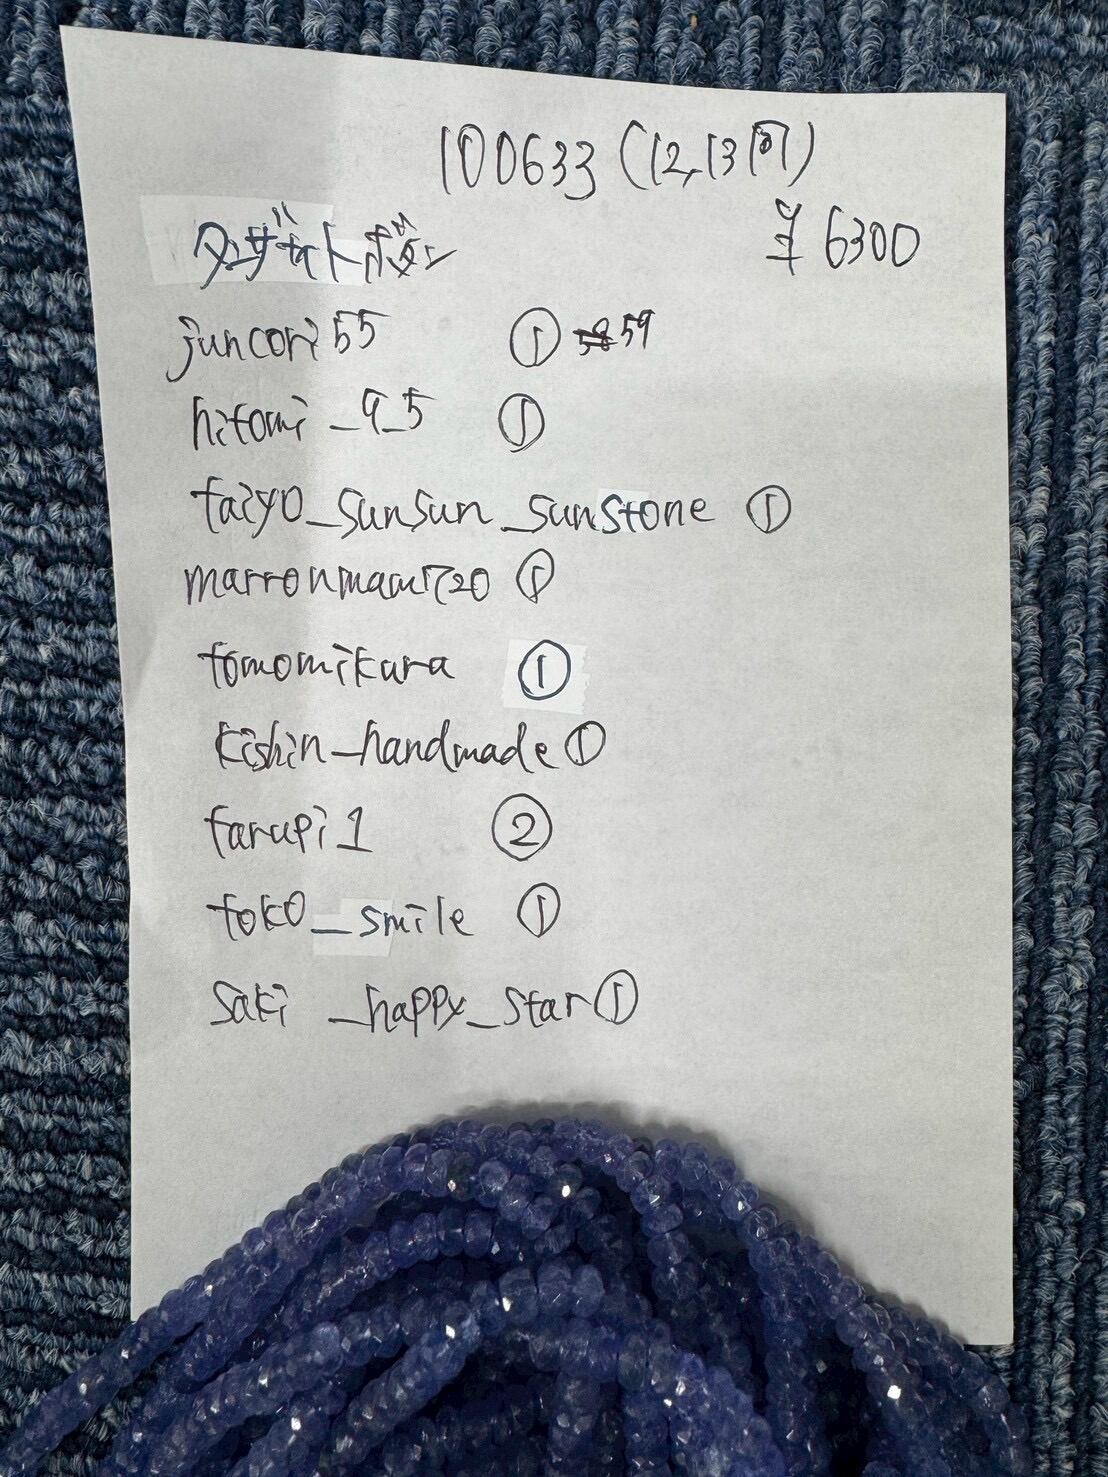 100633 (12,13時)
¥6300
タンザナイトボタン
juncori55 ① 59
hitomi_9_5 ①
taiyo_sunsun_sunstone ①
marronmami720 ①
tomomikura ①
kishin_handmade ①
farupi1 ②
toko_smile ①
saki_happy_star ①